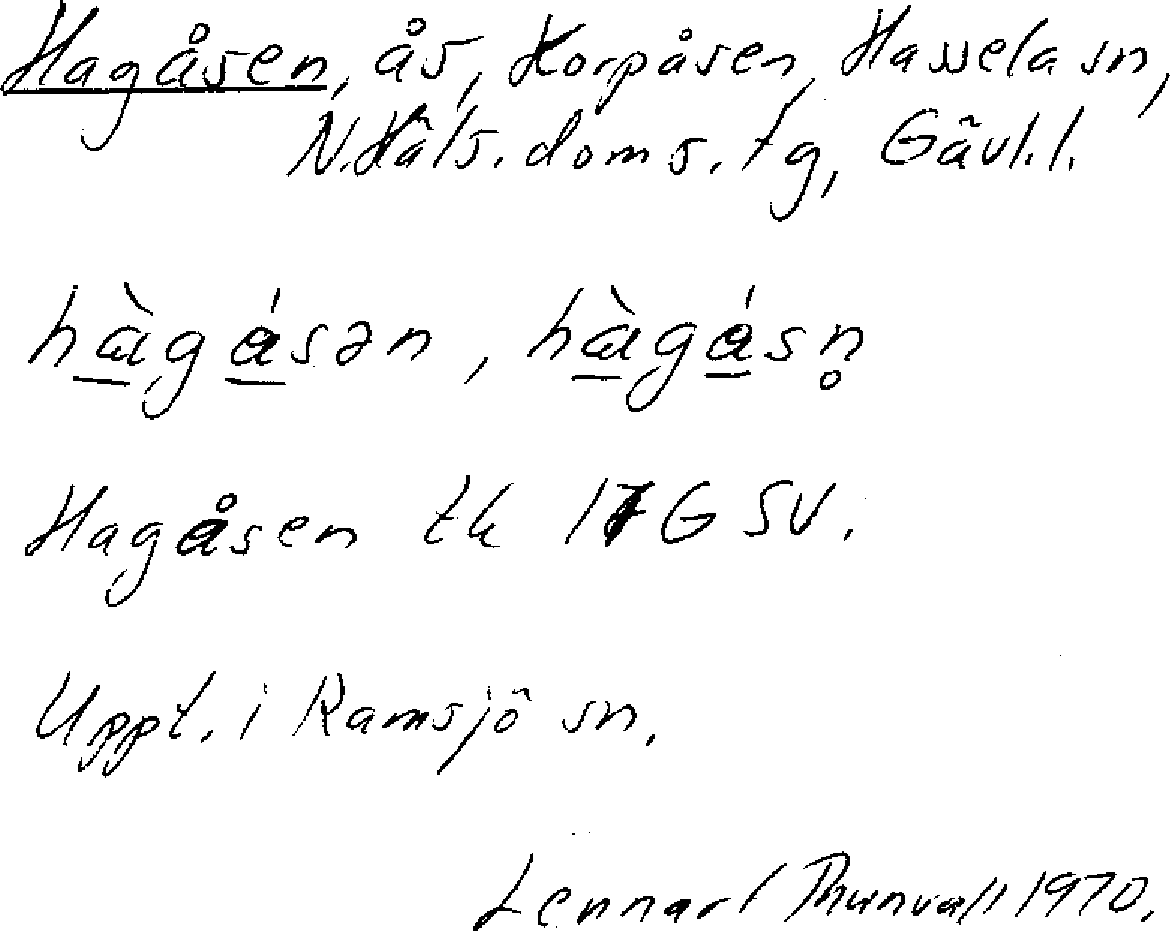 Hagåsen, ås, Korpåsen, Hassela sn,
N. Häls. doms. tg, Gävl. l.
hàgásən, hàgásn̥
Hagåsen tk 17G SV.
Uppt. i Ramsjö sn.
Lennart Thunvall 1970.